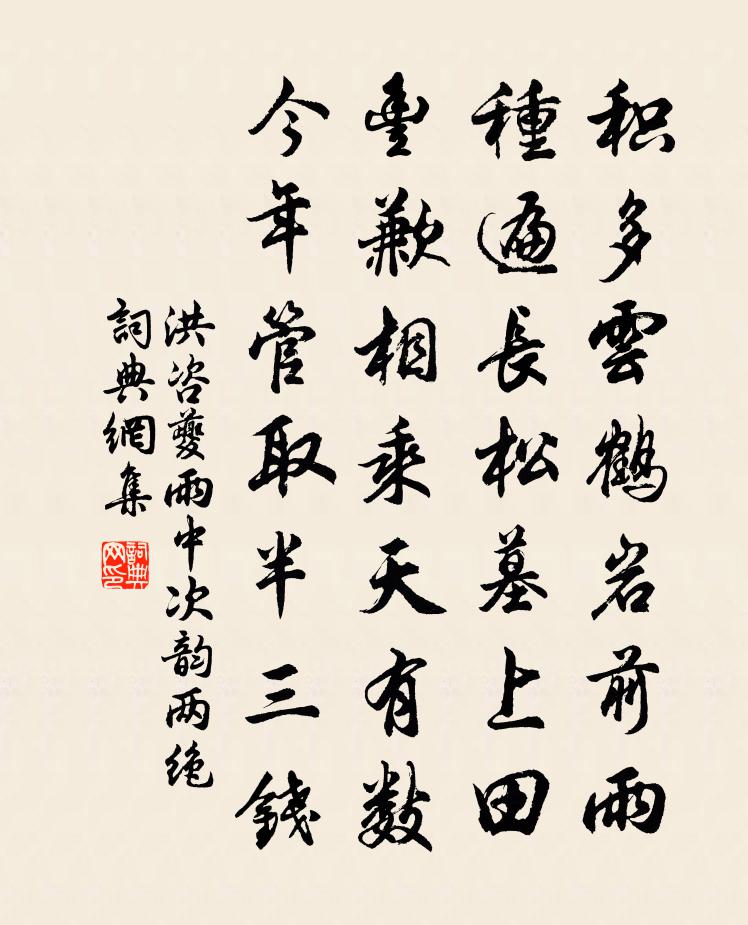 积多雲鶴岩前雨
種遍長松墓上田
豊歉相乘天有数
今年管取半三錢
洪咨夔雨中次韵两绝
詞典網集
詞典网印